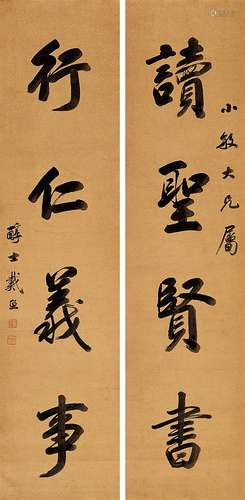 小敏大兄屬
讀聖賢書
行仁義事
醇士戴熙